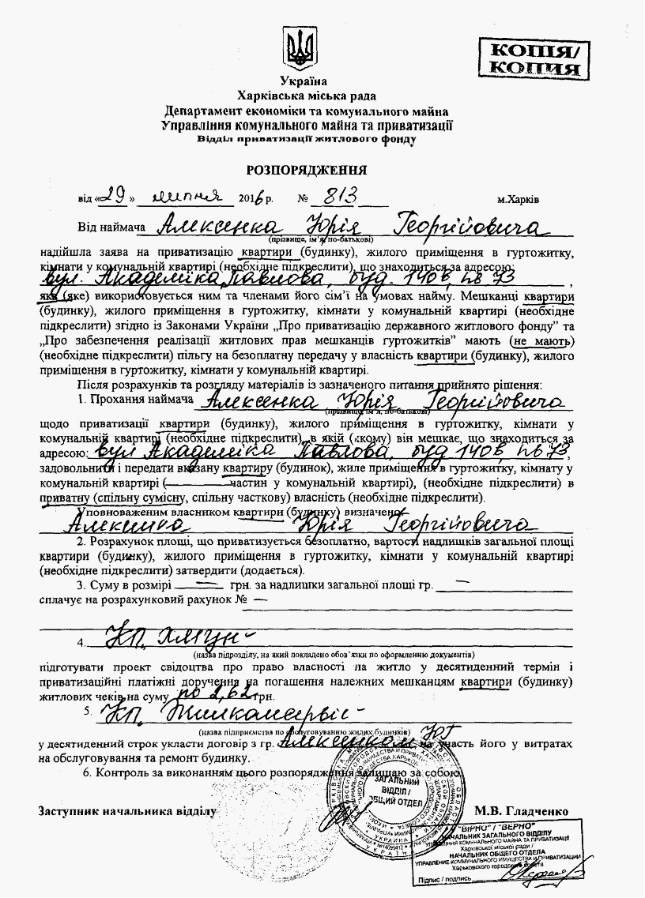 КОПІЯ/
КОПИЯ
Україна
Харківська міська рада
Департамент економіки та комунального майна
Управління комунального майна та приватизації
Відділ приватизації житлового фонду
РОЗПОРЯДЖЕННЯ
від «29» липня 2016 р. № 813 м.Харків
Від наймача Алексенка Юрія Георгійовича
(прізвище, ім'я, по-батькові)
надійшла заява на приватизацію квартири (будинку), жилого приміщення в гуртожитку,
кімнати у комунальній квартирі (необхідне підкреслити), що знаходиться за адресою:
вул. Академіка Павлова, буд. 140б, кв 73,
яка (яке) використовується ним та членами його сім'ї на умовах найму. Мешканці квартири
(будинку), жилого приміщення в гуртожитку, кімнати у комунальній квартирі (необхідне
підкреслити) згідно із Законами України „Про приватизацію державного житлового фонду" та
„Про забезпечення реалізації житлових прав мешканців гуртожитків" мають (не мають)
(необхідне підкреслити) пільгу на безоплатну передачу у власність квартири (будинку), жилого
приміщення в гуртожитку, кімнати у комунальній квартирі.
Після розрахунків та розгляду матеріалів із зазначеного питання прийнято рішення:
1. Прохання наймача Алексенка Юрія Георгійовича
(прізвище, ім'я, по-батькові)
щодо приватизації квартири (будинку), жилого приміщення в гуртожитку, кімнати у
комунальній квартирі (необхідне підкреслити), в якій (якому) він мешкає, що знаходиться за
адресою: вул Академіка Павлова, буд 140б, кв 73,
задовольнити і передати вказану квартиру (будинок), жиле приміщення в гуртожитку, кімнату у
комунальній квартирі (— частин у комунальній квартирі), (необхідне підкреслити) в
приватну (спільну сумісну, спільну часткову) власність (необхідне підкреслити).
Уповноваженим власником квартири (будинку) визначено
Алексенка Юрія Георгійовича
2. Розрахунок площі, що приватизується безоплатно, вартості надлишків загальної площі
квартири (будинку), жилого приміщення в гуртожитку, кімнати у комунальній квартирі
(необхідне підкреслити) затвердити (додається).
3. Суму в розмірі — грн. за надлишки загальної площі гр. —
сплачує на розрахунковий рахунок № —
4. КП
(назва підрозділу, на який покладено обов'язки по оформленню документів)
підготувати проект свідоцтва про право власності на житло у десятиденний термін і
приватизаційні платіжні доручення на погашення належних мешканцям квартири (будинку)
житлових чеків на суму по 2,62 грн.
5. КП Жилкомсервіс
(назва підприємства по обслуговуванню жилих будинків)
у десятиденний строк укласти договір з гр. Алексенком ЮГ на участь його у витратах
на обслуговування та ремонт будинку.
6. Контроль за виконанням цього розпорядження залишаю за собою.
Заступник начальника відділу М.В. Гладченко
ЗАГАЛЬНИЙ
ВІДДІЛ /
ОБЩИЙ ОТДЕЛ
"ВІРНО" / "ВЕРНО"
НАЧАЛЬНИК ЗАГАЛЬНОГО ВІДДІЛУ
УПРАВЛІННЯ КОМУНАЛЬНОГО МАЙНА ТА ПРИВАТИЗАЦІЇ
Харківської міської ради /
НАЧАЛЬНИК ОБЩЕГО ОТДЕЛА
УПРАВЛЕНИЕ КОММУНАЛЬНОГО ИМУЩЕСТВА И ПРИВАТИЗАЦИИ
Харьковского городского совета
Підпис / подпись